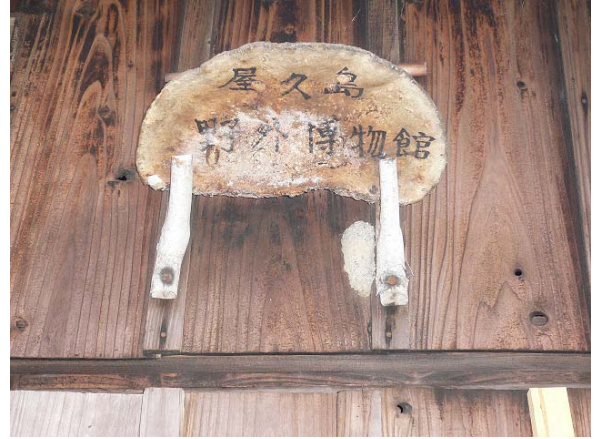 屋久島
野外博物館